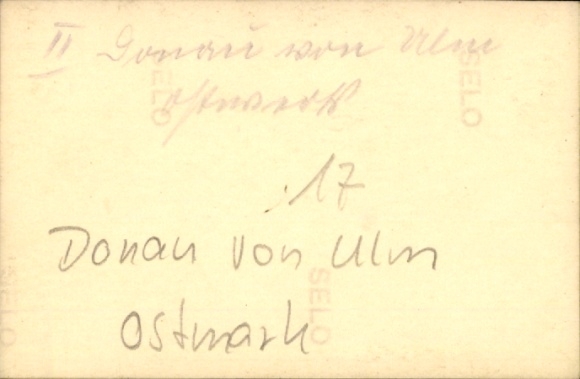 II Donau von Ulm
ostwärts
SELO
SELO
17
Donau von Ulm
SELO
Ostmark
SELO